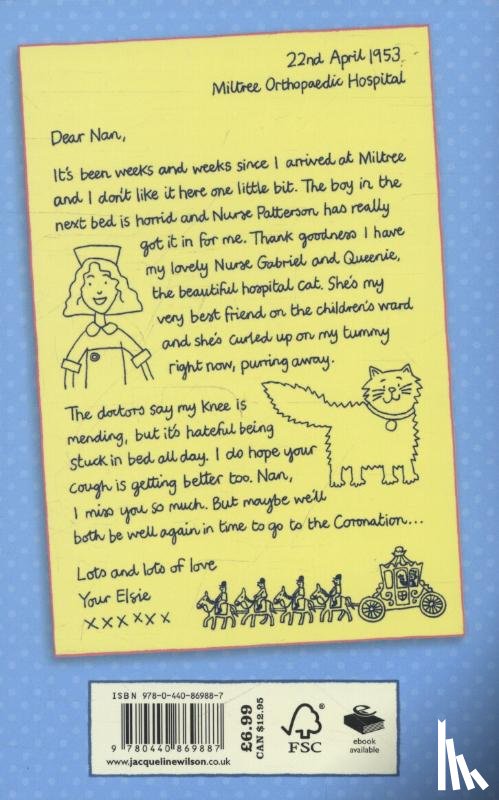 22nd April 1953
Miltree Orthopaedic Hospital
Dear Nan,
It's been weeks and weeks since I arrived at Miltree
and I don't like it here one little bit. The boy in the
next bed is horrid and Nurse Patterson has really
got it in for me. Thank goodness I have
my lovely Nurse Gabriel and Queenie,
the beautiful hospital cat. She's my
very best friend on the children's ward
and she's curled up on my tummy
right now, purring away.
The doctors say my knee is
mending, but it's hateful being
stuck in bed all day. I do hope your
cough is getting better too. Nan,
I miss you so much. But maybe we'll
both be well again in time to go to the Coronation...
Lots and lots of love
Your Elsie
xxxxxx
ISBN 978-0-440-86988-7
9 780440 869887
www.jacquelinewilson.co.uk
£6.99
CAN $12.95
®
FSC
ebook
available